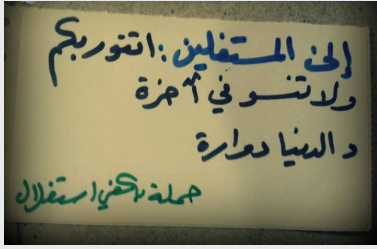 إلى المستغلين : اتقو ربكم
ولا تنسو في آخرة
و الدنيا دوارة
حملة بكفي استغلال